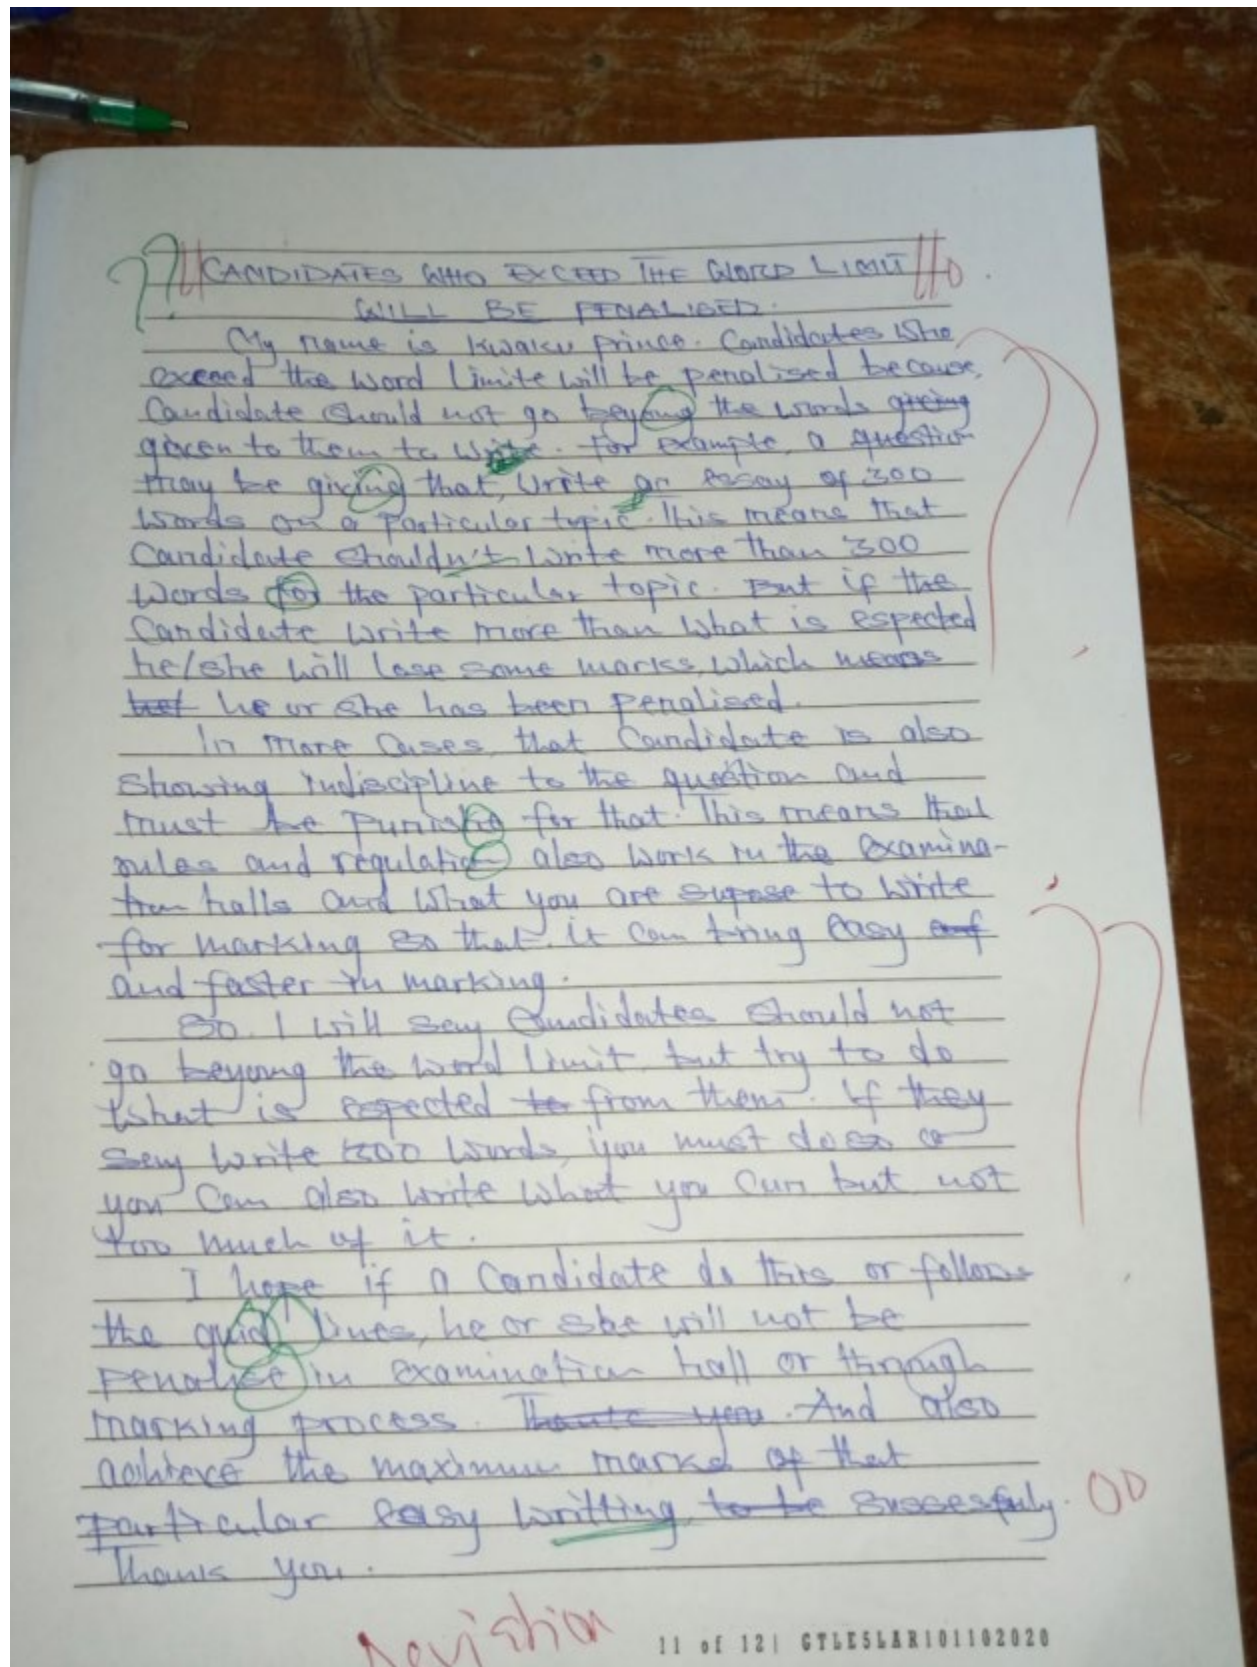 CANDIDATES WHO EXCEED THE WORD LIMIT
WILL BE PENALISED.
My name is Kwaku Prince. Candidates who
exceed the word limite will be penalised because,
Candidate should not go beyoung the words giving
given to them to write. For example, a question
may be giving that, write an essay of 300
words on a particular topic. This means that
Candidate shouldn't write more than 300
words for the particular topic. But if the
Candidate write more than what is espected
he/she will lose some marks, which means
he or she has been penalised.
In more cases, that Candidate is also
showing indiscipline to the question and
must be punish for that. This means that
rules and regulation also work in the examina-
tion halls and what you are supose to write
for marking so that it can bring easy
and faster in marking.
So. I will say Candidates should not
go beyoung the word limit, but try to do
what is espected to from them. If they
say write 300 words, you must do so or
you can also write what you can but not
too much of it.
I hope if a Candidate do this or follows
the guid lines, he or she will not be
penalise in examination hall or through
marking process. Thank you. And also
achieve the maximum marks of that
particular easy writting to be successfuly.
Thank you.
Deviation
11 of 12| GTLESLAR101102020